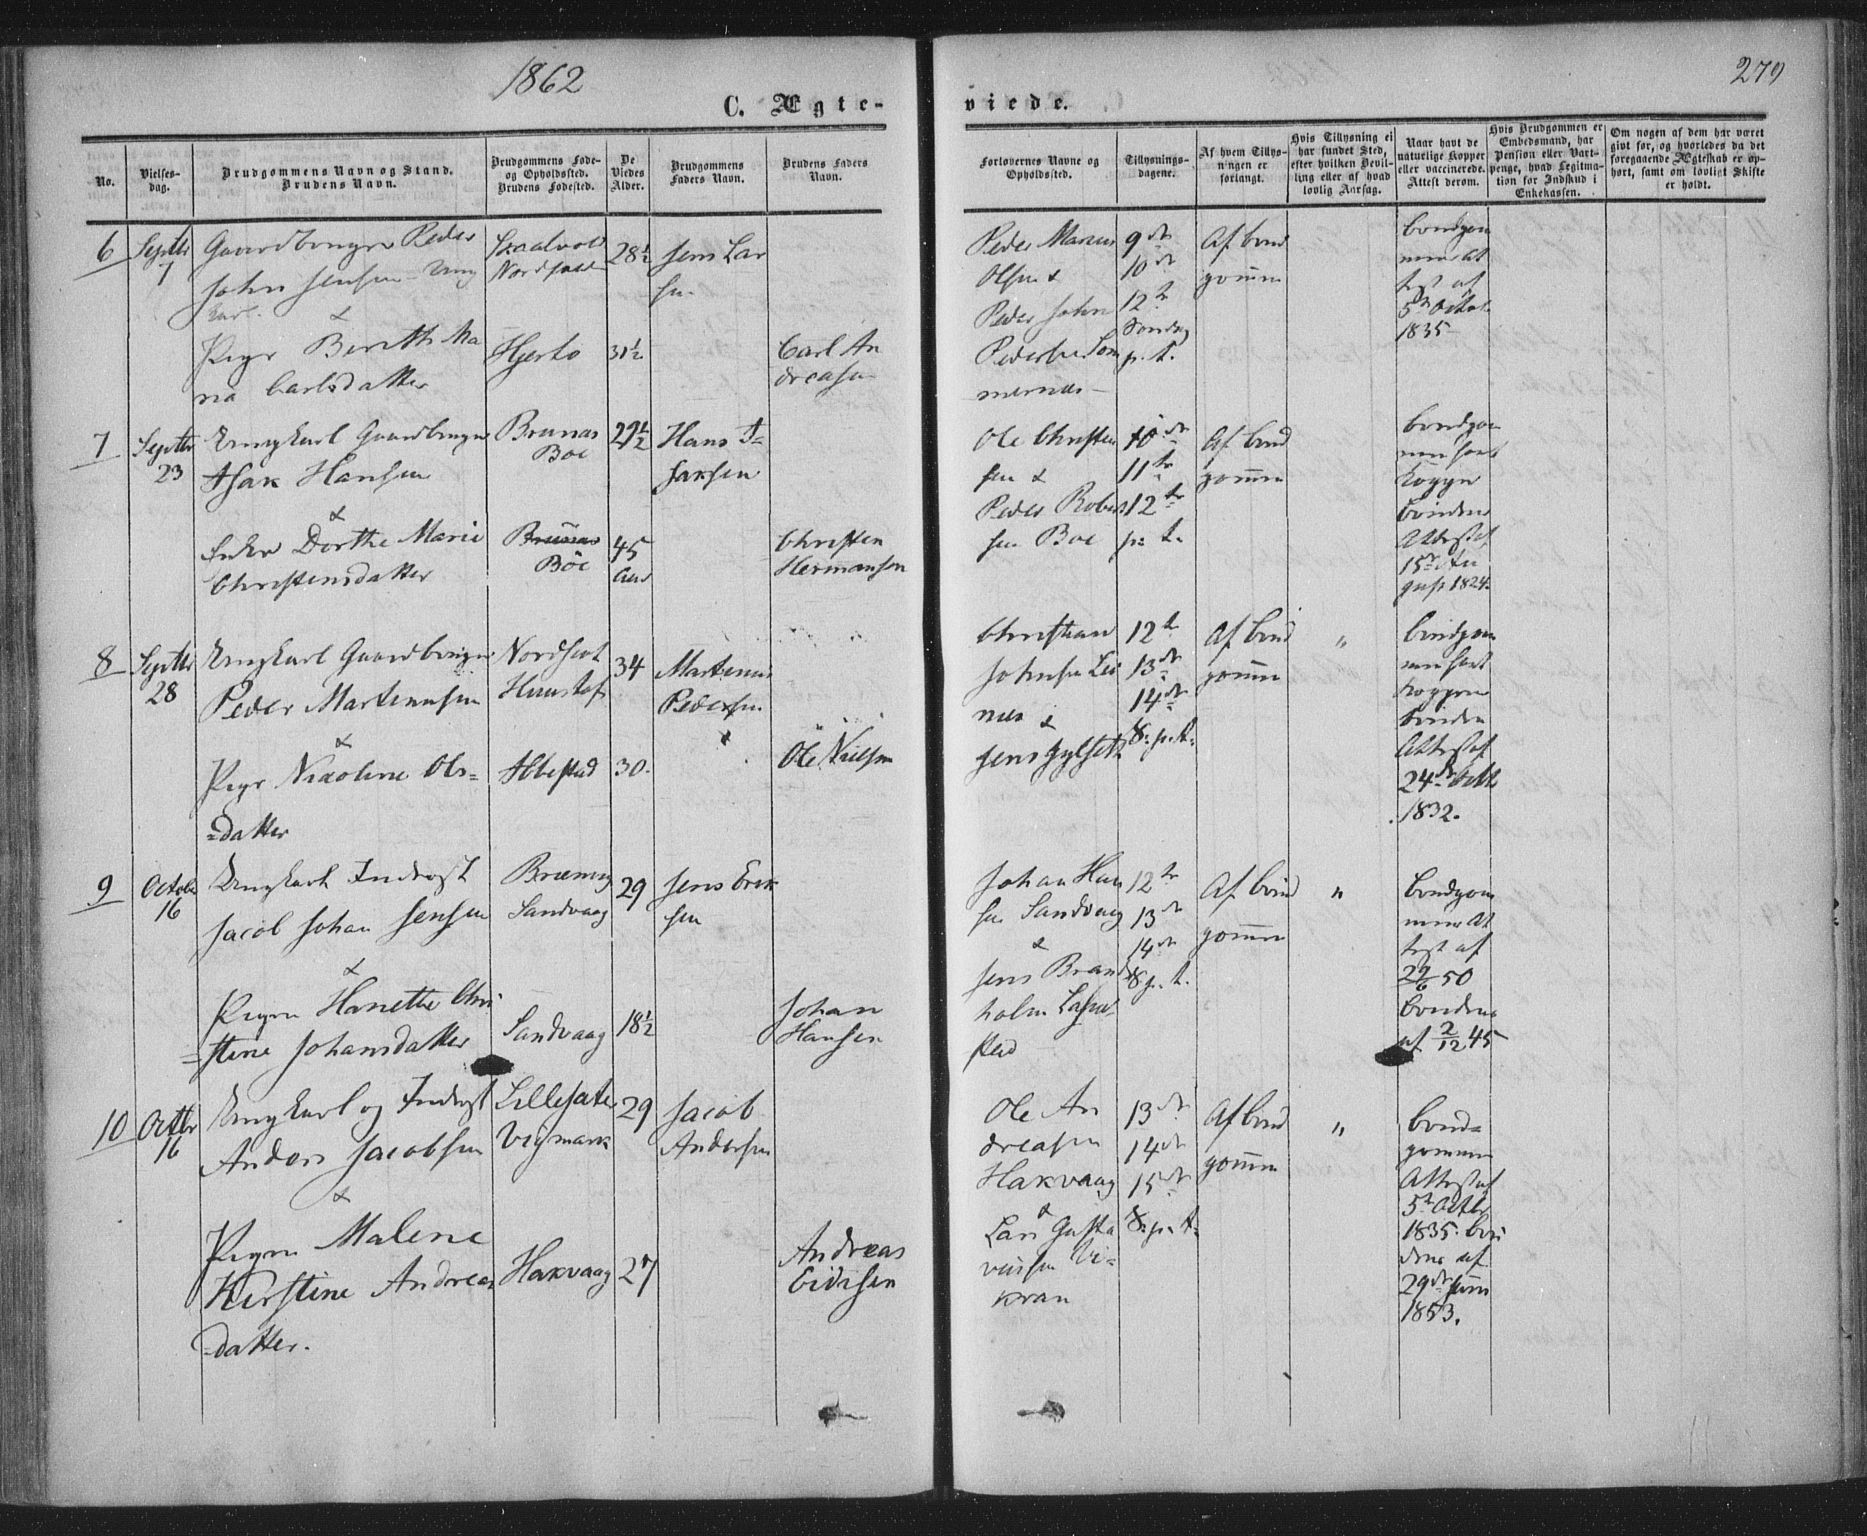 1862
279
C. Ægte-
viede.
No.
Vielses-
dag.
Brudgommens Navn og Stand.
Brudens Navn.
Brudgommens Føde-
og Opholdssted.
Brudens Fødested.
De
Viedes
Alder.
Brudgommens
Faders Navn.
Brudens Faders
Navn.
Forlovernes Navne og
Opholdssted.
Tillysnings-
dagene.
Af hvem Tillys-
ningen er
forlangt.
Hvis Tillysning ei
har fundet Sted,
efter hvilken Bevil-
ling eller af hvad
lovlig Aarsag.
Naar havt de
naturlige Kopper
eller vaccinerede.
Attest derom.
Hvis Brudgommen er
Embedsmand, har
Pension eller Vart-
penge, hvad Legitima-
tion for Indskud i
Enkekassen.
Om nogen af dem har været
givt før, og hvorledes da det
foregaaende Ægteskab er op-
hørt, samt om lovligt Skifte
er holdt.
6
Septbr
7
Gaardbruger Peder
John Jensen Ung
karl.
&
Pige Bereth Ma
ria Carlsdatter
Hjertø
28½
31½
Jens Lar
sen
Carl An
dreasen
Peder Marius
Olsen &
Peder John
Pedersen Som
mernes
9de
10de
12te
Søndag
p. t.
Af brud
gommen
brudgom
mens At
test af
5te Octob.
1835
7
Septbr
23
Ungkarl Gaardbruger
Isak Hansen
&
Enke Dorthe Marie
Christensdatter
Brunas
Böe
Brunas
Böe
29½
45
Aar
Hans I=
saksen
Christen
Hermansen
Ole Christen
sen &
Peder Robert
sen Böe
10de
11te
12te
p. t.
Af brud
gommen
brudgom
men havt
Kopper
brudens
Attest af
15de Au
gust 1824
8
Septbr
28
Ungkarl Gaardbruger
Peder Martinusen
&
Pige Nicoline Ols=
=datter
Nordfjord
Abestad
34
30.
Martinus
Pedersen
Ole Nielsen
Christian
Johnsen Lei
nes &
Jens Gylseth
12te
13de
14de
S. p. t.
Af brud
gommen
"
brudgom
men havt
Kopperne
bruden
Attest af
24de Octb
1832.
9
Octob
16
Ungkarl Inderst
Jacob Johan Jensen
&
Pigen Hanette Chri
=stine Johansdatter
Sandvaag
Sandvaag
29
18½
Jens Erik
sen
Johan
Hansen
Johan Han
sen Sandvaag
&
Jens Brand
holm
12te
13de
14de
S. p. t.
Af brud
gommen
"
brudgom
mens At
test af
22/6 50
brudens
af 2/12 45
10
Octbr
16
Ungkarl og Inderst
Anders Jacobsen
&
Pigen Malene
Kirstine Andreas
=datter.
Vigmark
Hakvaag
29
27
Jacob
Andersen
Andreas
Eidisen
Ole An
dreasen
Hakvaag
&
Lars Gusta
vussen Vi=
kran
13de
14de
15de
S. p. t.
Af brud
gommen
"
brud=
gommens
Attest af
5te Octbr
1835. bru
dens af
29de Juni
1853.